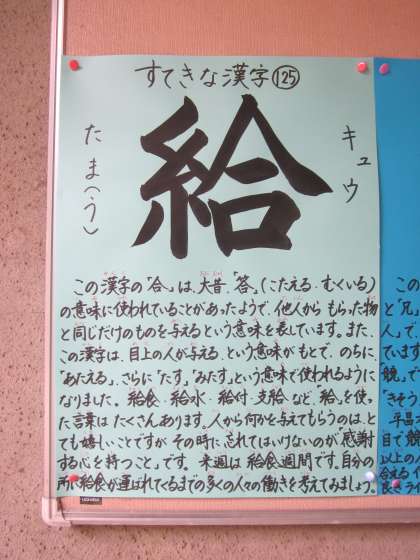 すてきな漢字⑫⑤
給
キュウ
たま(う)
この漢字の「合」は、大昔、「答」(こたえる・むくいる)
の意味に使われていることがあったようで、他人からもらった物
と同じだけのものを与えるという意味を表しています。また、
この漢字は、目上の人が与える、という意味がもとで、のちに、
「あたえる」、さらに「たす」「みたす」という意味で使われるように
なりました。給食・給水・給付・支給など、「給」を使っ
た言葉はたくさんあります。人から何かを与えてもらうのは、と
ても嬉しいことですが、その時に忘れてはいけないのが「感謝
する心を持つこと」です。来週は給食週間です。自分の
所に給食が運ばれてくるまでの多くの人々の働きを考えてみましょう。
こ
と「兄」
人」で、
ています
競」で
「きそう
平昌オ
目で競
以上の人
合える
良きライ